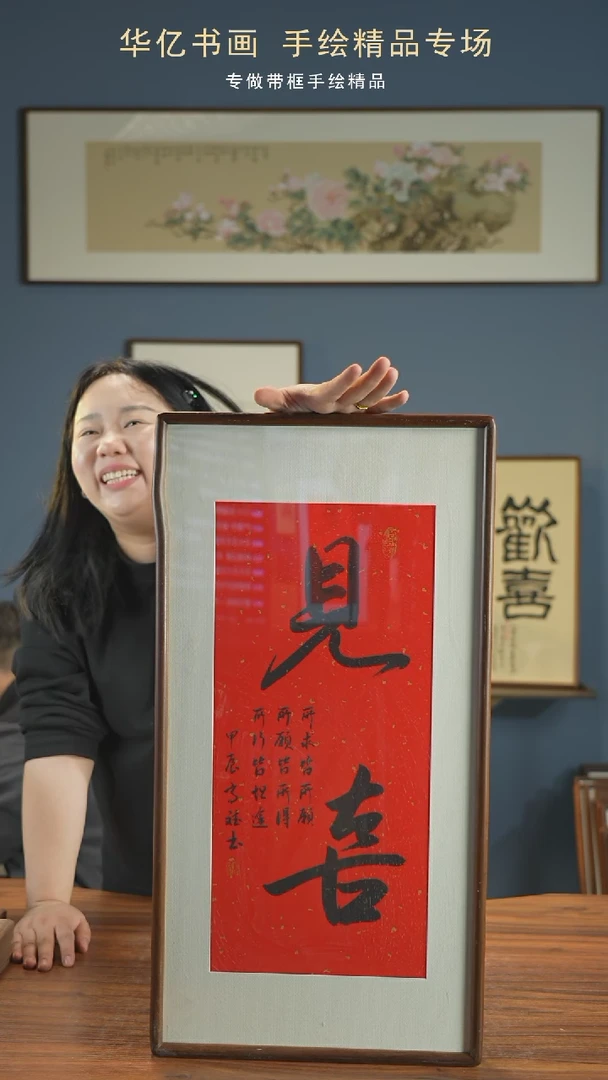 华亿书画 手绘精品专场
专做带框手绘精品
歡喜
見喜
所求皆所願
所願皆所得
所行皆坦途
甲辰
書